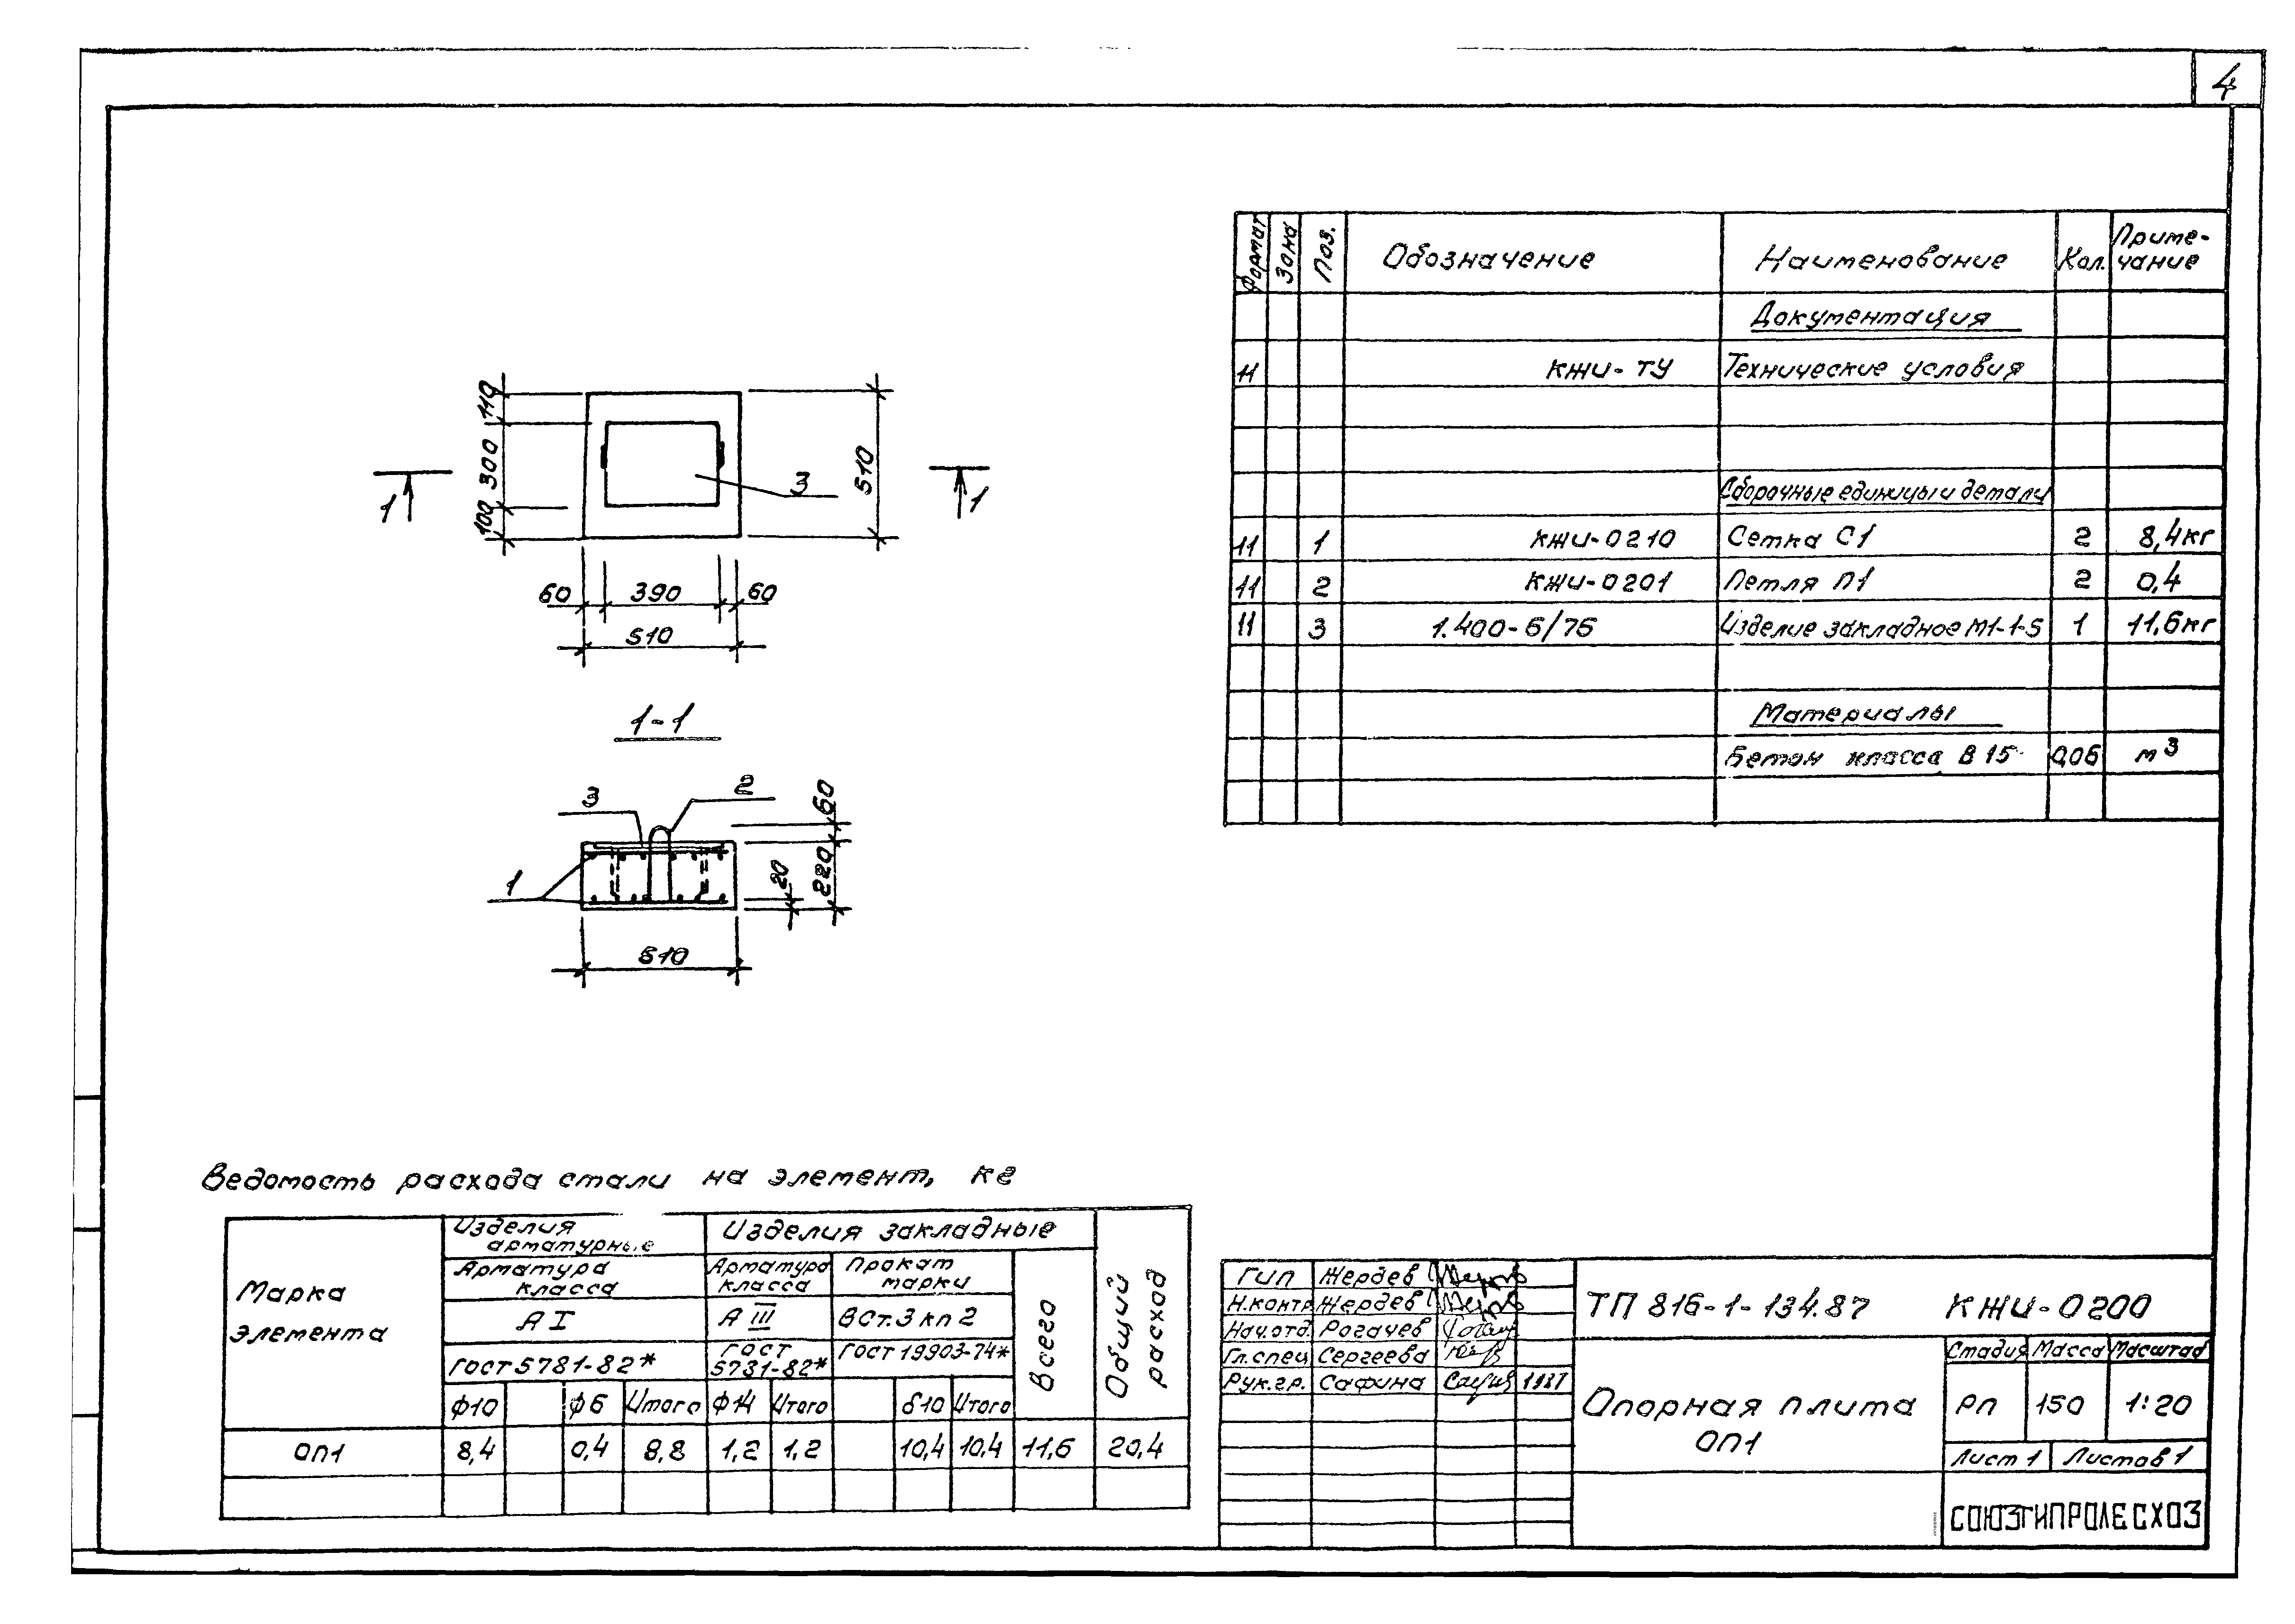 4
Формат Зона Поз. Обозначение Наименование Кол. Приме-
чание
Документация
11 КЖИ-ТУ Технические условия
Сборочные единицы и детали
11 1 КЖИ-0210 Сетка С1 2 8,4кг
11 2 КЖИ-0201 Петля П1 2 0,4
11 3 1.400-6/76 Изделие закладное М1-1-5 1 11,6кг
Материалы
Бетон класса В15 0,06 м3
110
300
100
510
1
1
3
60 390 60
510
1-1
3
2
60
220
20
1
510
Ведомость расхода стали на элемент, кг
Марка
элемента
Изделия
арматурные
Изделия закладные
Общий
расход
Арматура
класса
Арматура
класса
Прокат
марки
Всего
А I
А III
ВСт.3 кп 2
ГОСТ 5781-82*
ГОСТ
5781-82*
ГОСТ 19903-74*
Ф10 Ф6 Итого Ф14 Итого δ10 Итого
ОП1 8,4 0,4 8,8 1,2 1,2 10,4 10,4 11,6 20,4
ГИП Жердев
Н.контр. Жердев
Нач.отд. Рогачев
Гл.спец. Сергеева
Рук.гр. Сафина 1987
ТП 816-1-134.87 КЖИ-0200
Опорная плита
ОП1
Стадия Масса Масштаб
РП 150 1:20
Лист 1 Листов 1
СОЮЗГИПРОЛЕСХОЗ